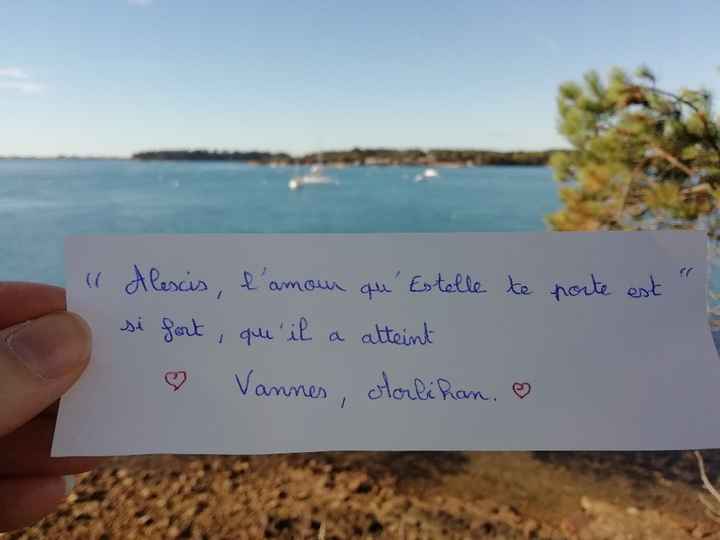 " Alexis, l'amour qu'Estelle te porte est "
si fort, qu'il a atteint
♡ Vannes, Morbihan. ♡